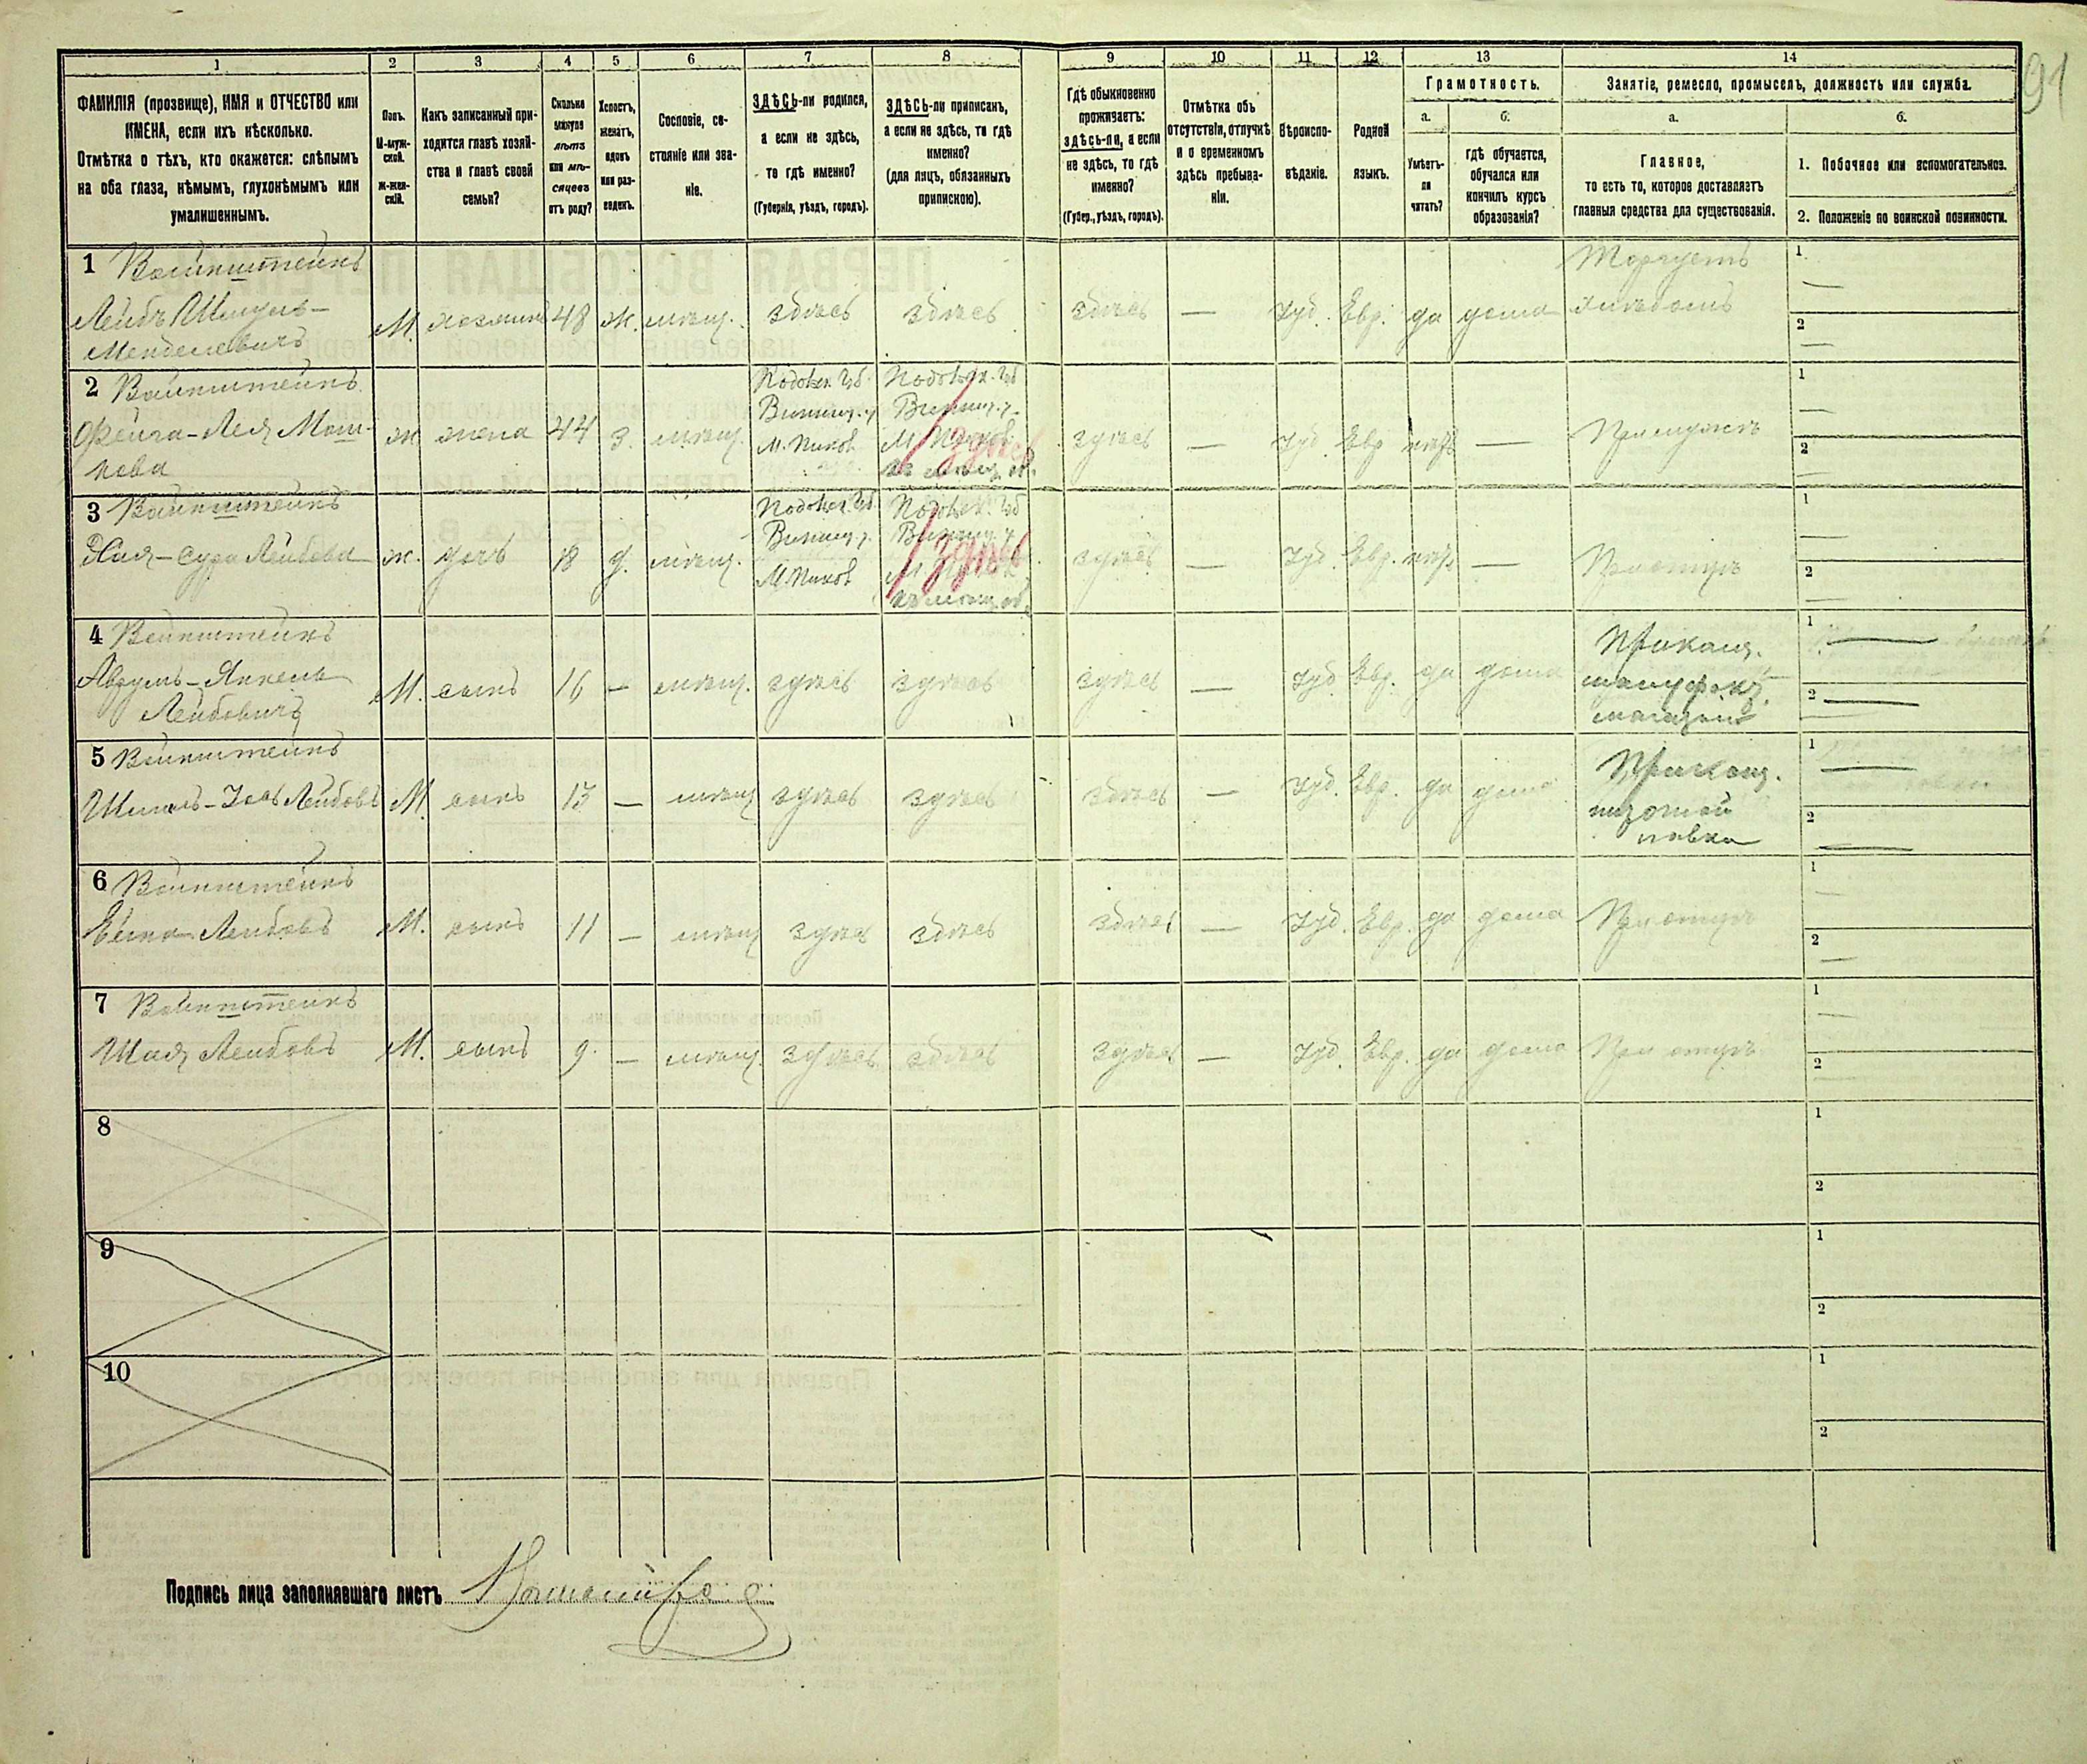 91
1 2 3 4 5 6 7 8 9 10 11 12 13 14
ФАМИЛІЯ (прозвище), ИМЯ и ОТЧЕСТВО или
ИМЕНА, если ихъ нѣсколько.
Отмѣтка о тѣхъ, кто окажется: слѣпымъ
на оба глаза, нѣмымъ, глухонѣмымъ или
умалишеннымъ.
Полъ.
М-муж-
ской.
ж-жен-
скій.
Какъ записанный при-
ходится главѣ хозяй-
ства и главѣ своей
семьи?
Сколько
минуло
лѣтъ
или мѣ-
сяцевъ
отъ роду?
Холостъ,
женатъ,
вдовъ
или раз-
веденъ.
Сословіе, со-
стояніе или зва-
ніе.
ЗДѢСЬ-ли родился,
а если не здѣсь,
то гдѣ именно?
(Губернія, уѣздъ, городъ).
ЗДѢСЬ-ли приписанъ,
а если не здѣсь, то гдѣ
именно?
(для лицъ, обязанныхъ
припискою).
Гдѣ обыкновенно
проживаетъ:
здѣсь-ли, а если
не здѣсь, то гдѣ
именно?
(Губер., уѣздъ, городъ).
Отмѣтка объ
отсутствіи, отлучкѣ
и о временномъ
здѣсь пребыва-
ніи.
Вѣроиспо-
вѣданіе.
Родной
языкъ.
Грамотность.
а.
Умѣетъ-
ли
читать?
б.
гдѣ обучается,
обучался или
кончилъ курсъ
образованія?
Занятіе, ремесло, промыселъ, должность или служба.
а.
Главное,
то есть то, которое доставляетъ
главныя средства для существованія.
б.
1. Побочное или вспомогательное.
2. Положеніе по воинской повинности.
1 Вайнштейнъ
Лейбъ Шмуль-
Менделевичъ
М. хозяинъ 48 ж. мѣщ. здѣсь здѣсь здѣсь — Іуд. Евр. да дома
Торгуетъ
хлѣбомъ
1
—
2
—
2 Вайнштейнъ
Фейга-Лея Мош-
кова
ж жена 44 з. мѣщ.
Подольск. Губ.
Винниц. у.
М. Пиков
Подольск. Губ
Винниц. у.
М. Пиков
здѣсь
здѣсь — Іуд. Евр нѣтъ —
При мужѣ
1
—
2
—
3 Вайнштейнъ
Хая-Сура Лейбова ж. дочь 18 д. мѣщ.
Подольск. Губ.
Винниц. у.
М. Пиков
Подольск. Губ
Винниц. у
здѣсь
здѣсь — Іуд. Евр. нѣтъ —
При отцѣ
1
—
2
—
4 Вайнштейнъ
Аврумъ-Янкель
Лейбовичъ
М. сынъ 16 — мѣщ. здѣсь здѣсь здѣсь — Іуд. Евр. да дома
Приказч.
мануфакт.
магазин
1
—
2
—
5 Вайнштейнъ
Лейбовъ М. сынъ 13 — мѣщ здѣсь здѣсь здѣсь — Іуд. Евр. да дома
Приказч.
лавка
1
—
2
—
6 Вайнштейнъ
Лейбовъ М. сынъ 11 — мѣщ здѣсь здѣсь здѣсь — Іуд. Евр. да дома При отцѣ
1
—
2
—
7 Вайнштейнъ
Шая Лейбовъ М. сынъ 9. — мѣщ. здѣсь здѣсь здѣсь — Іуд. Евр. да дома При отцѣ
1
—
2
8
1
2
9
1
2
10
1
2
Подпись лица заполнявшаго листъ